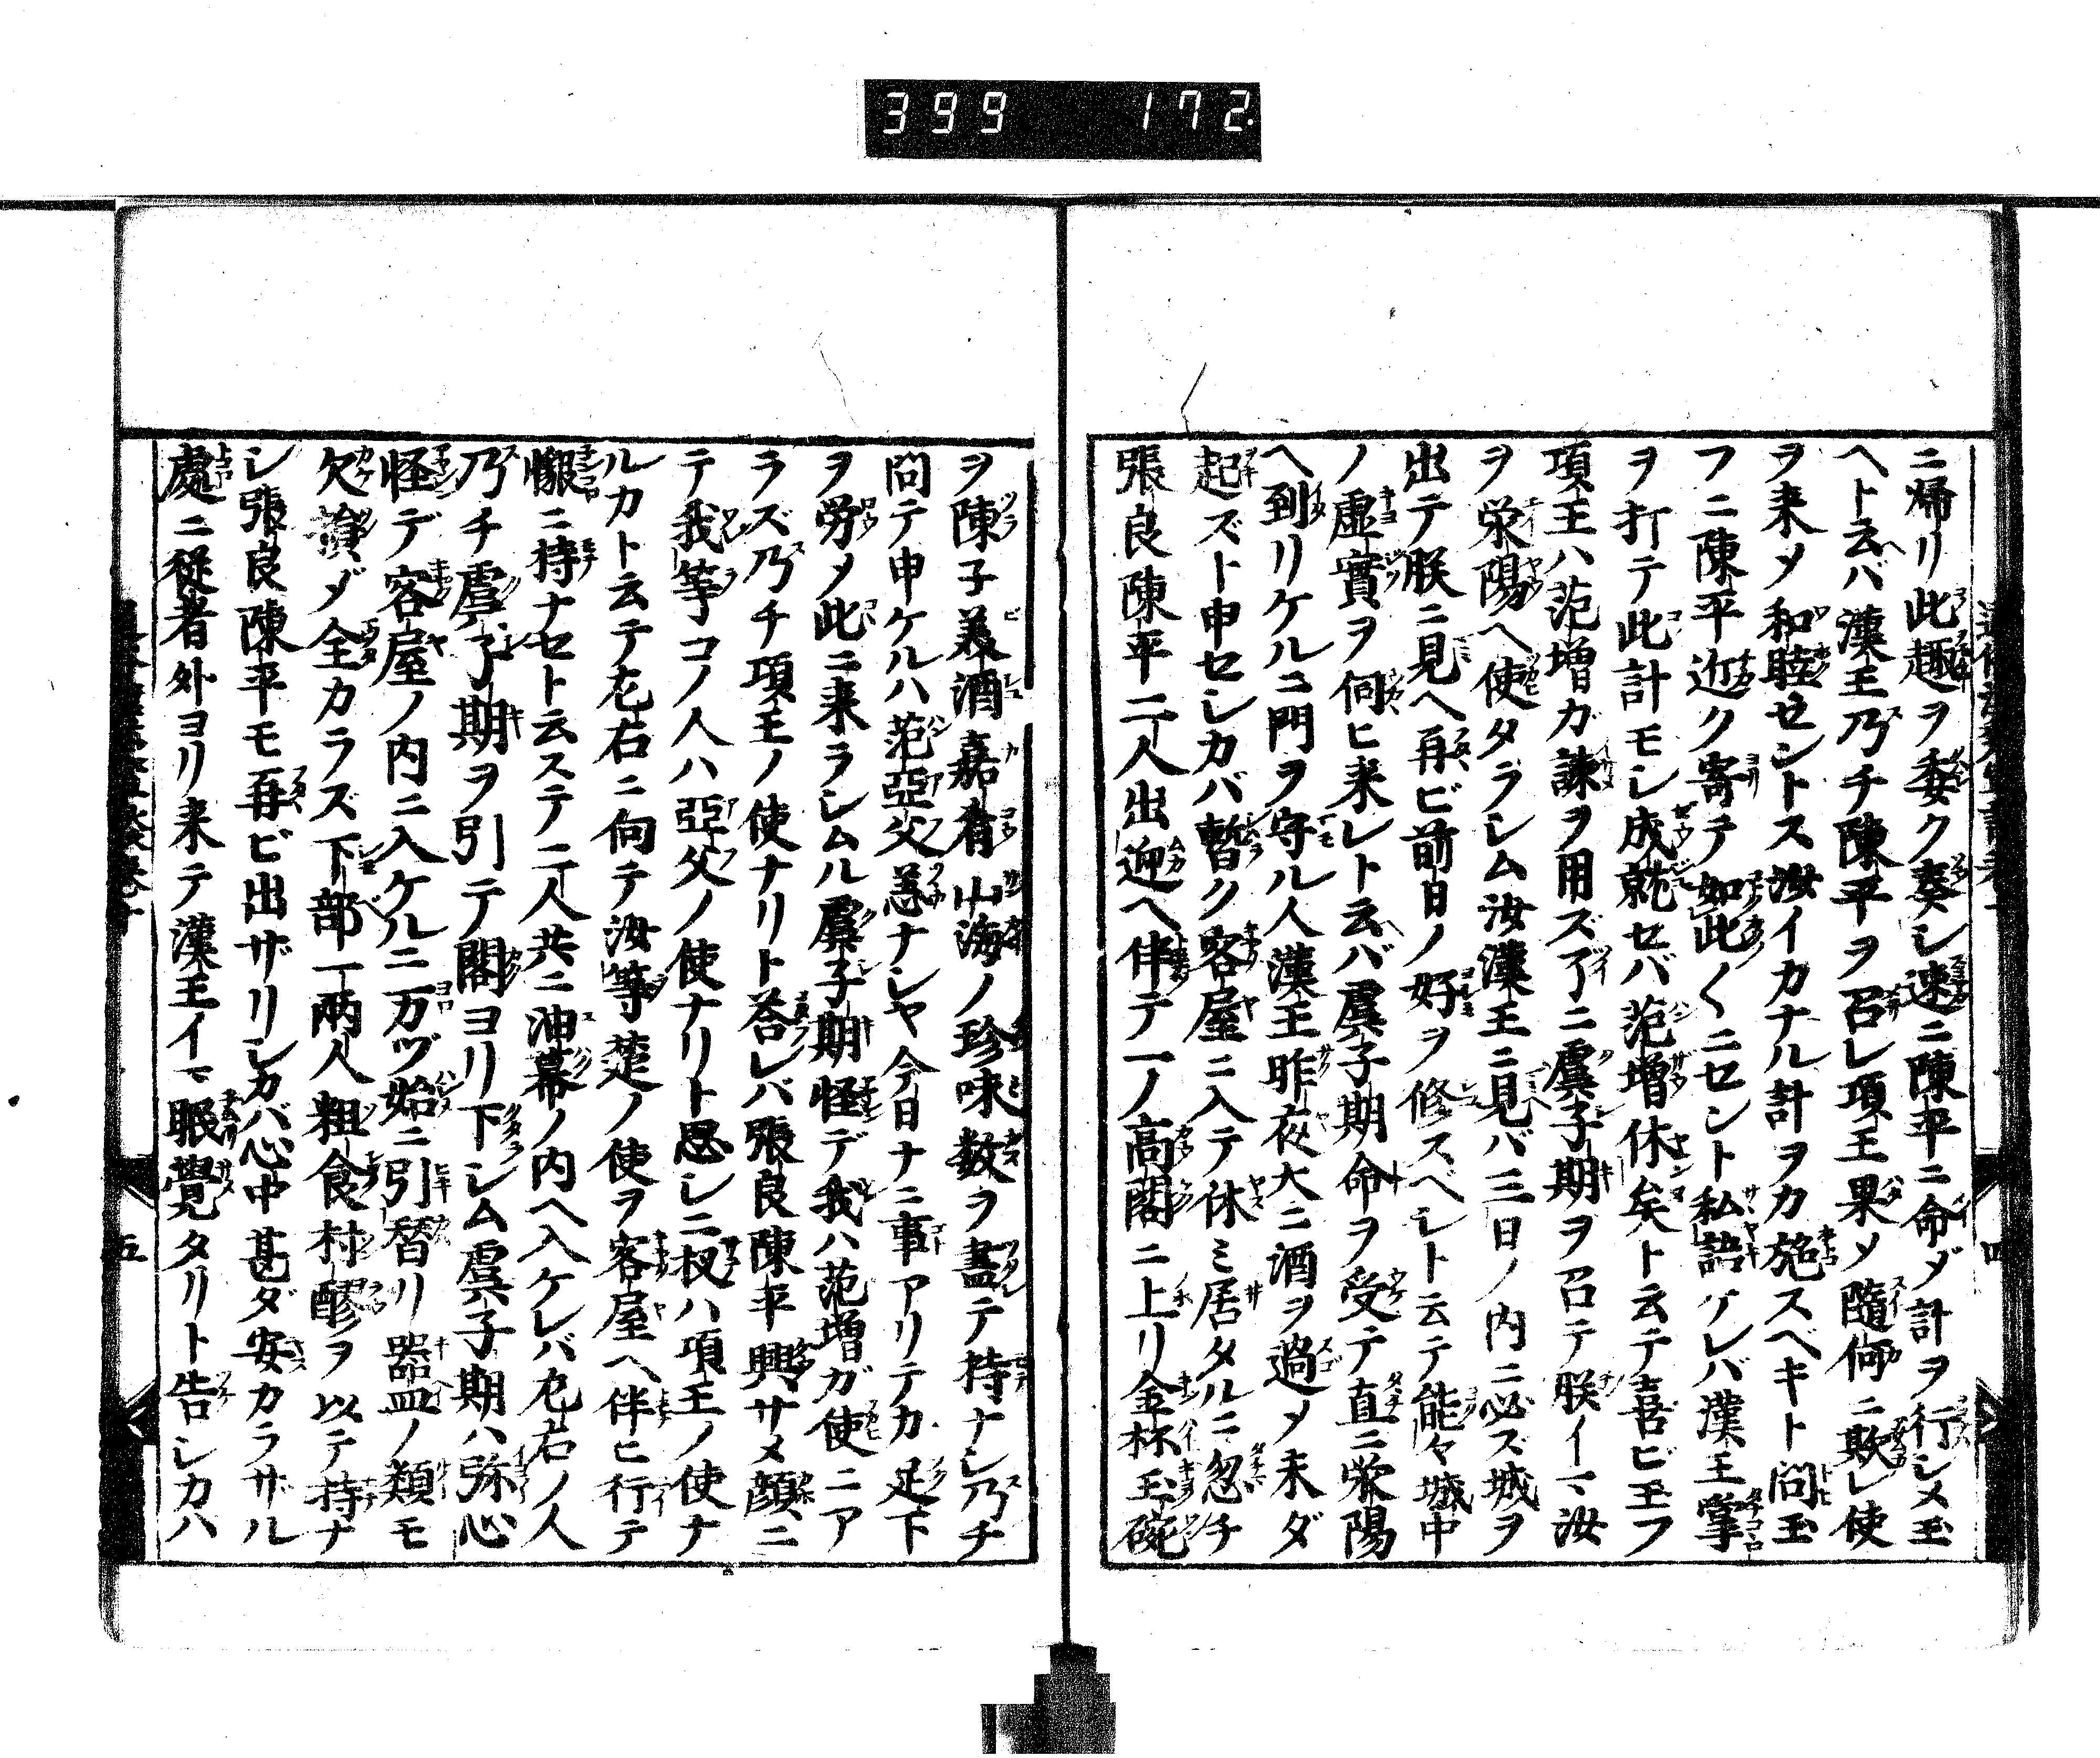 399 172.
ニ帰リ此趣ヲ委ク奏シ速ニ陳平ニ命ジ計ヲ行シメ玉
ヘト云バ漢王乃チ陳平ヲ召レ項王果メ隨何ニ欺レ使
ヲ来メ和睦セントス汝イカナル計ヲカ施スベキト問玉
フニ陳平近ク寄テ如此〱ニセント私語ケレバ漢王掌
ヲ打テ此計モシ成就セバ范増休矣ト云テ喜ビ玉フ
項王ハ范増ガ諫ヲ用ズ乃ニ虞子期ヲ召テ朕イマ汝
ヲ栄陽ヘ使タラシム汝漢王ニ見バ三日ノ内ニ必ズ城ヲ
出テ朕ニ見ヘ再ビ前日ノ好ヲ修スベシト云テ能々城中
ノ虚實ヲ伺ヒ来レト云バ虞子期命ヲ受テ直ニ栄陽
ヘ到リケルニ門ヲ守ル人漢王昨夜大ニ酒ヲ過メ未ダ
起ズト申セシカバ暫ク客屋ニ入テ休ミ居タルニ忽チ
張良陳平二人出迎ヘ伴テ一ノ高閣ニ上リ金杯玉碗
ヲ陳子美酒嘉肴山海ノ珍味数ヲ盡テ持ナシ乃チ
問テ申ケルハ范亞父恙ナシヤ今日ナニ事アリテカ足下
ヲ労メ此ニ来ラシムル虞子期怪デ我ハ范増ガ使ニア
ラズ乃チ項王ノ使ナリト荅レバ張良陳平興サメ顔ニ
テ我等コノ人ハ亞父ノ使ナリト思シニ扨ハ項王ノ使ナ
ルカト云テ左右ニ向テ汝等楚ノ使ヲ客屋ヘ伴ヒ行テ
懇ニ持ナセト云ステ二人共ニ油幕ノ内ヘ入ケレバ左右ノ人
乃チ虞子期ヲ引テ閣ヨリ下シム虞子期ハ弥心
怪デ客屋ノ内ニ入ケルニ万ヅ始ニ引替リ器皿ノ類モ
欠損ジ全カラズ下部一両人粗食村醪ヲ以テ持ナ
シ張良陳平モ再ビ出ザリシカバ心中甚ダ安カラザル
處ニ従者外ヨリ来テ漢王イマ眠覺タリト告シカハ
四
五